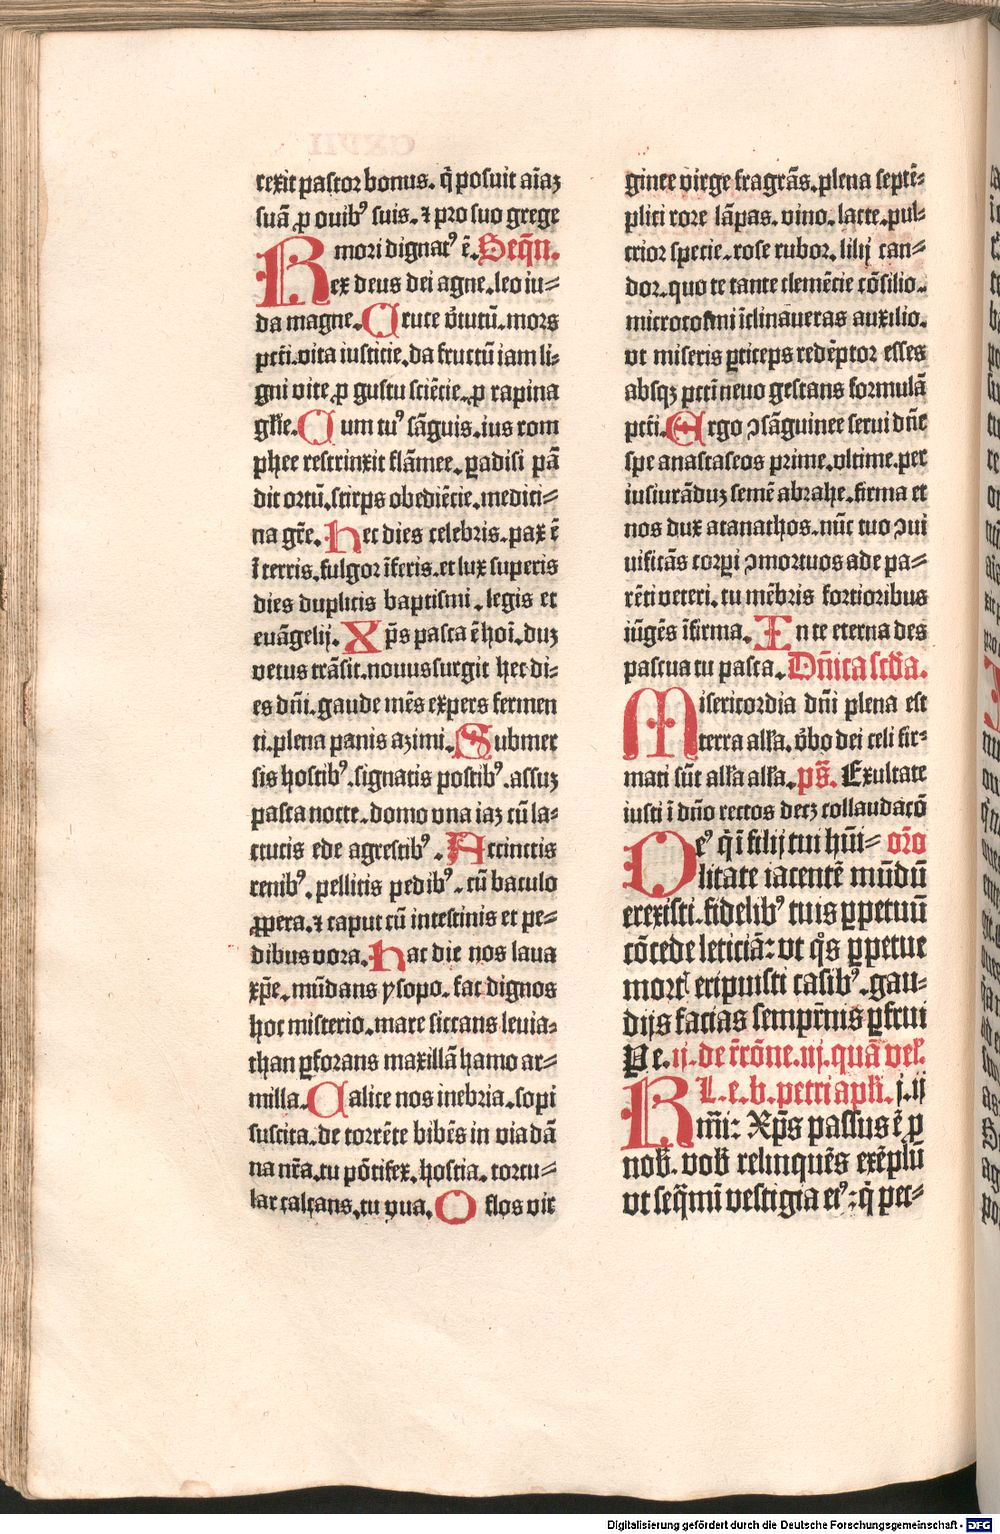 rexit pastor bonus. q̄ posuit aīaꝫ
suā ꝓ ouibꝰ suis. ⁊ pro suo grege
mori dignatꝰ ē. Seqn̄.
Rex deus dei agne. leo iu⸗
da magne. Cruce v̄tutū. mors
pctī. vita iusticie. da fructū iam li⸗
gni vite ꝓ gustu sciēcie. ꝓ rapina
gl̄ie. Cum tuꝰ sāguis. ius rom
phee restrinxit flāmee. ꝑadisi pā
dit ortū. stirps obediēcie. medici⸗
na gr̄e. Hec dies celebris. pax ē
ī terris. fulgor īferis. et lux superis
dies duplicis baptismi. legis et
euāgelij. Xp̄s pasca ē hoī. duꝫ
vetus trāsit. nouus surgit hec di⸗
es dn̄i. gaude mēs expers fermen
ti. plena panis azimi. Submer
sis hostibꝰ. signatis postibꝰ. assuꝫ
pasca nocte. domo vna iaꝫ cū la⸗
ctucis ede agrestibꝰ. Accinctis
renibꝰ. pellitis pedibꝰ. cū baculo
ꝓpera. ⁊ caput cū intestinis et pe⸗
dibus vora. Hac die nos laua
xp̄e. mūdans ysopo. fac dignos
hoc misterio. mare siccans leuia⸗
than ꝑforans maxillā hamo ar⸗
milla. Calice nos inebria. sopi
suscita. de torrēte bibēs in via dā
na nr̄a. tu pōtifex. hostia. torcu⸗
lar calcans. tu vua. O flos vir
ginee virge fragrās. plena septē⸗
plici rore lāpas. vino. lacte. pul⸗
crior specie. rose rubor. lilij can⸗
dor. quo te tante clemēcie cōsilio.
microcosmi īclinaueras auxilio.
vt miseris ꝑticeps redēptor esses
absqꝫ pctī neuo gestans formulā
pctī. Ergo ↄsāguinee serui dn̄e
spe anastaseos prime. vltime. per
iusiurāduꝫ semē abrahe. firma et
nos dux atanathos. nūc tuo ↄui
uificās corpi ↄmortuos ade pa⸗
rēti veteri. tu mēbris fortioribus
iūgēs īfirma. In te eterna des
pascua tu pasca. Dn̄ica scd̄a.
Misericordia dn̄i plena est
terra all̄a. v̄bo dei celi fir⸗
mati sūt all̄a all̄a. ps̄. Exultate
iusti ī dn̄o rectos decꝫ collaudacō
Deꝰ q̄ ī filij tui hūi⸗ or̄o
litate iacentē mūdū
erexisti. fidelibꝰ tuis ꝑpetuū
cōcede leticiā: vt q̊s ꝑpetue
mort̉ eripuisti casibꝰ. gau⸗
dijs facias sempr̄nis ꝑfrui
Pe. ij. de r̄rōne. iij. quā vel̄.
L. e. b. petri apl̄i. j. ij
Rm̄i: Xp̄s passus ē ꝓ
nob̄. vob̄ relinquēs exēplū
vt seq̄mī vestigia eiꝰ: q̄ pec⸗
Digitalisierung gefördert durch die Deutsche Forschungsgemeinschaft - DFG